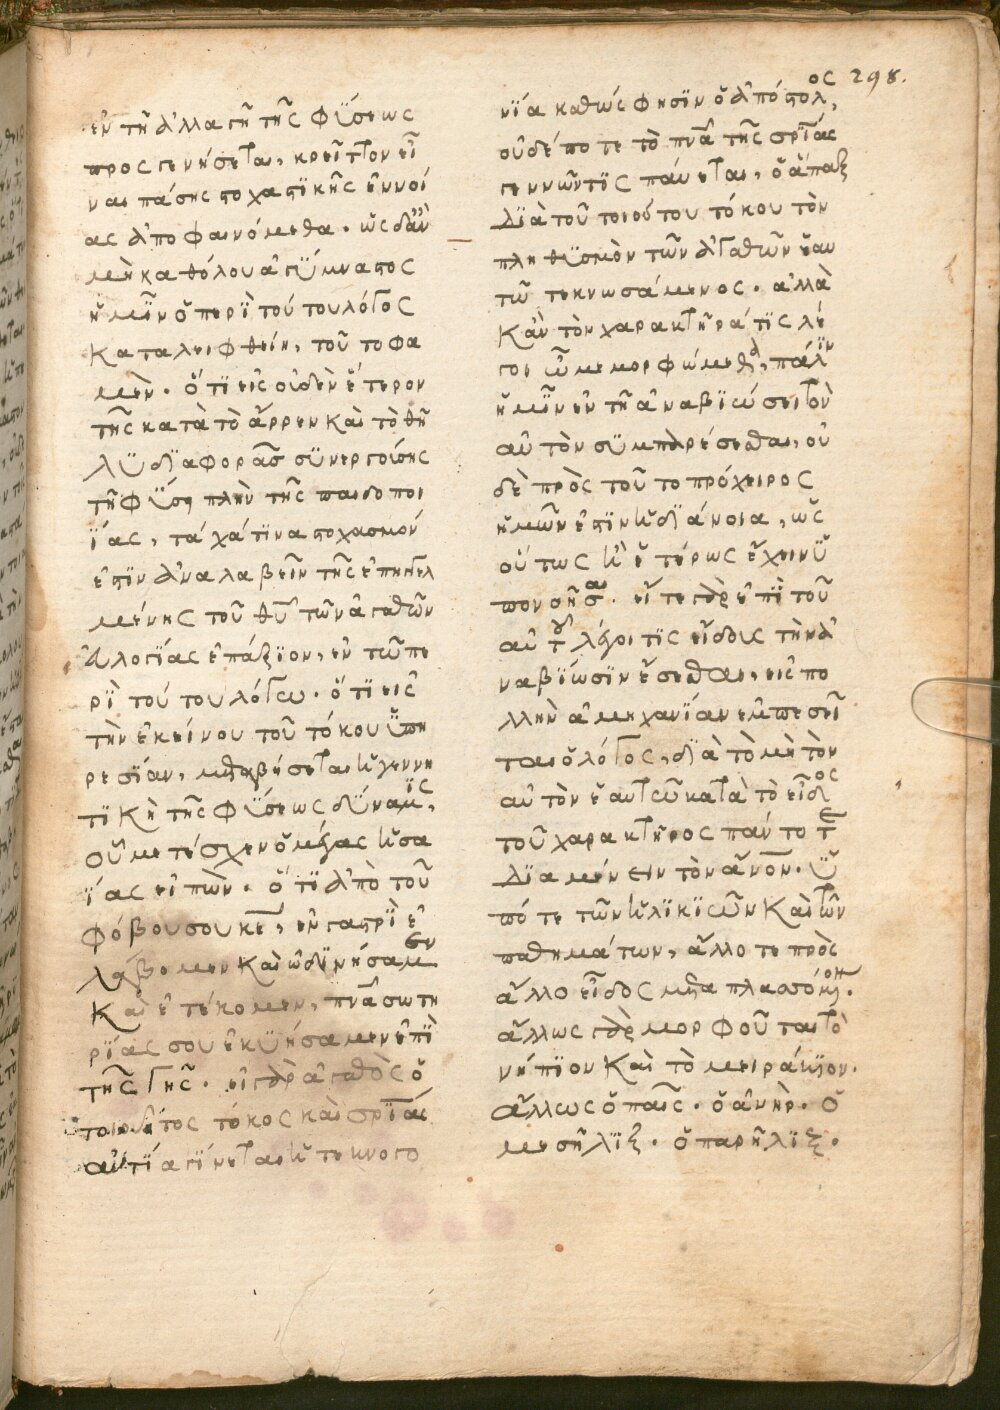 298.
ἐν τῆ ἀλλαγῆ τῆς φύσεως
προσγενήσεται, κρεῖττον εἶ
ναι πάσης στοχαστικῆς ἐννοί
ας ἀποφαινόμεθα. ὡς δ᾽ ἂν
μὴ καθόλου ἀγύμναστος
ἡμῖν ὁ περὶ τούτου λόγος
καταλειφθείη, τοῦτο φα
μὲν. ὅτι εἰς οὐδὲν ἕτερον
τῆς κατὰ τὸ ἄρρεν καὶ τὸ θῆ
λυ διαφορᾶς συνεργούσης
τῆ φύσει πλὴν τῆς παιδοποι
ίας, τάχά τινα στοχασμόν
ἐστιν ἀναλαβεῖν τῆς ἐπηγγελ
μένης τοῦ θῦ τῶν ἀγαθῶν
εὐλογίας ἐπάξιον, ἐν τῶ πε
ρὶ τούτου λόγω. ὅτι εἰς
τὴν ἐκείνου τοῦ τόκου ὑπη
ρεσίαν, μεταβήσεται ἡ γεννη
τικὴ τῆς φύσεως δύναμις,
οὗ μετέσχεν ὁ μέγας ἡσα
ίας εἰπὼν. ὅτι ἀπὸ τοῦ
φόβου σου κε, ἐν γαστρὶ ἐ
λάβομεν καὶ ὠδινήσαμεν
καὶ ἐτέκομεν, πνα σωτη
ρίας σου ἐκυήσαμεν ἐπὶ
τῆς γῆς. εἰ γὰρ ἀγαθὸς ὁ
τοιοῦτος τόκος καὶ σρίας
αἰτία γίνεται ἡ τεκνογο
νία καθώς φησιν ὁ ἀπόστολος,
οὐδέποτε τὸ πνα τῆς σρίας
γεννῶν τὶς παύεται, ὁ ἅπαξ
διὰ τοῦ τοιούτου τόκου τὸν
πληθυσμὸν τῶν ἀγαθῶν ἑαυ
τῶ τεκνωσάμενος. ἀλλὰ
κἂν τὸν χαρακτῆρά τις λέ
γοι ὧ μεμορφώμεθα, πάλιν
ἡμῖν ἐν τῆ ἀναβιώσει τὸν
αὐτὸν συμπαρέσεσθαι, οὐ
δὲ πρὸς τοῦτο πρόχειρος
ἡμῶν ἐστιν ἡ διάνοια, ὡς
οὕτως ἢ ἑτέρως ἔχειν ὑ
πονοῆσαι. εἴτε γὰρ ἐπὶ τοῦ
αὐτοῦ λέγοι τις εἴδους τὴν ἀ
ναβίωσιν ἔσεσθαι, εἰς πο
λλὴν ἀμηχανίαν ἐμπεσεῖ
ται ὁ λόγος, διὰ τὸ μὴ τὸν
αὐτὸν ἑαυτῶ κατὰ τὸ εἶδος
τοῦ χαρακτῆρος πάντοτε
διαμένειν τὸν ἄνον. ὑ
πό τε τῶν ἡλικιῶν καὶ τῶν
παθημάτων, ἄλλοτε πρὸς
ἄλλο εἶδος μεταπλασσόμενον.
ἄλλως γὰρ μορφοῦται τὸ
νήπιον καὶ τὸ μειράκιον.
ἄλλως ὁ παῖς. ὁ ἀνὴρ. ὁ
μεσῆλιξ. ὁ παρῆλιξ.